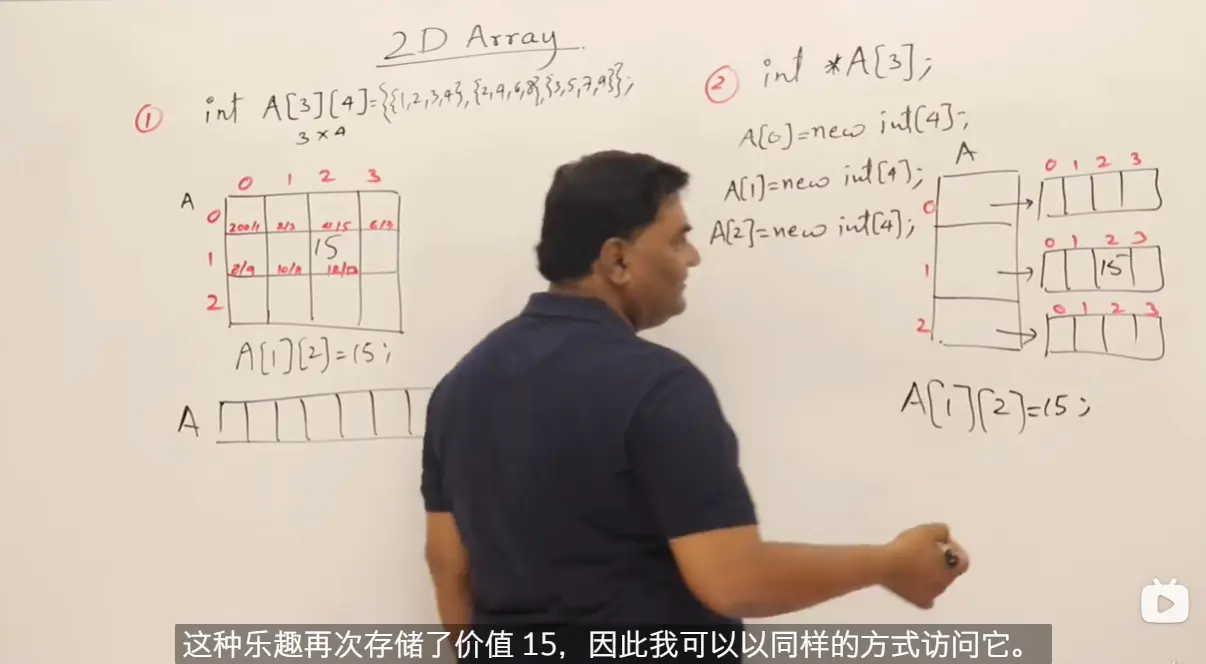 2D Array
① int A[3][4]={{1,2,3,4},{2,4,6,8},{3,5,7,9}};
3 × 4
0 1 2 3
A
0
200/1 2/3 4/5 6/7
1 15
8/9 10/11 12/13
2
A[1][2]=15;
A
② int *A[3];
A[0]=new int[4];
A[1]=new int[4];
A[2]=new int[4];
A
0 1 2 3
0
0 1 2 3
1 15
0 1 2 3
2
A[1][2]=15;
这种乐趣再次存储了价值 15，因此我可以以同样的方式访问它。